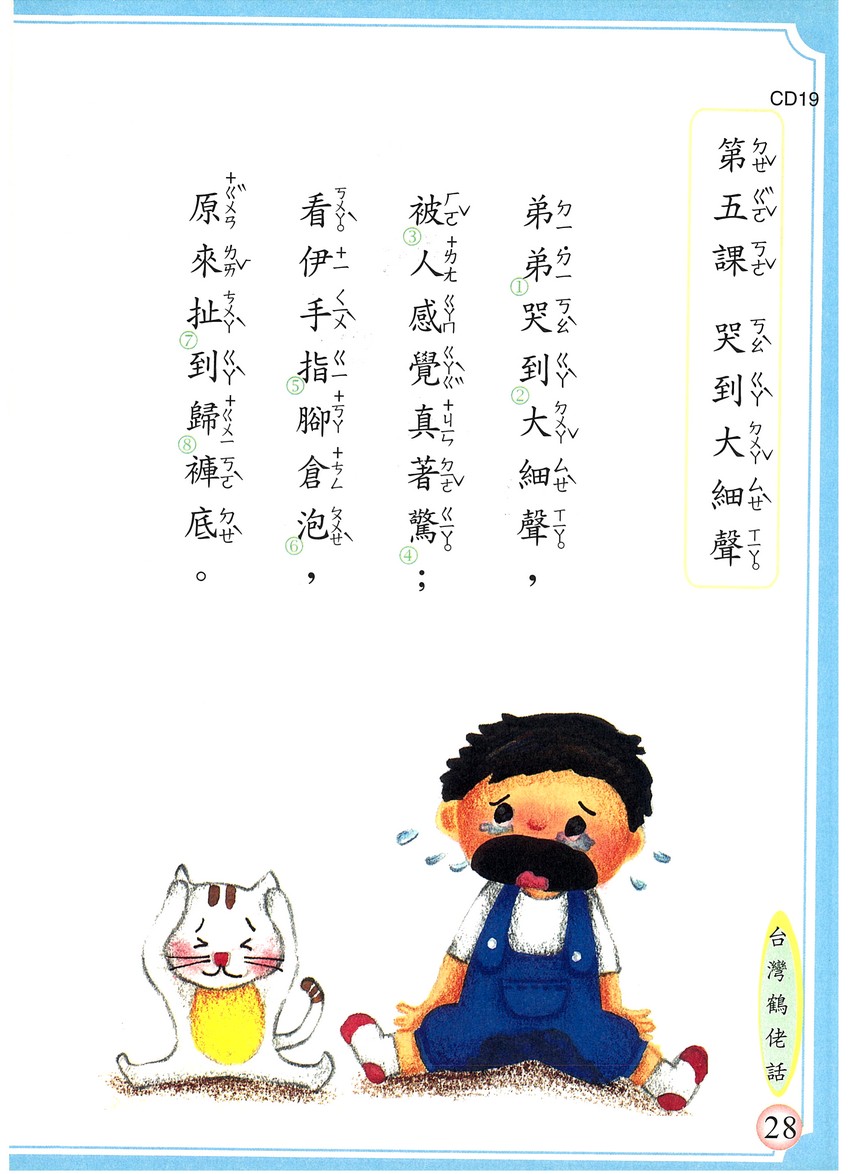 CD19
第五課 哭到大細聲
弟弟①哭到②大細聲，
被③人感覺真著驚④；
看伊手指⑤腳倉泡⑥，
原來扯⑦到歸⑧褲底。
台灣鶴佬話
28